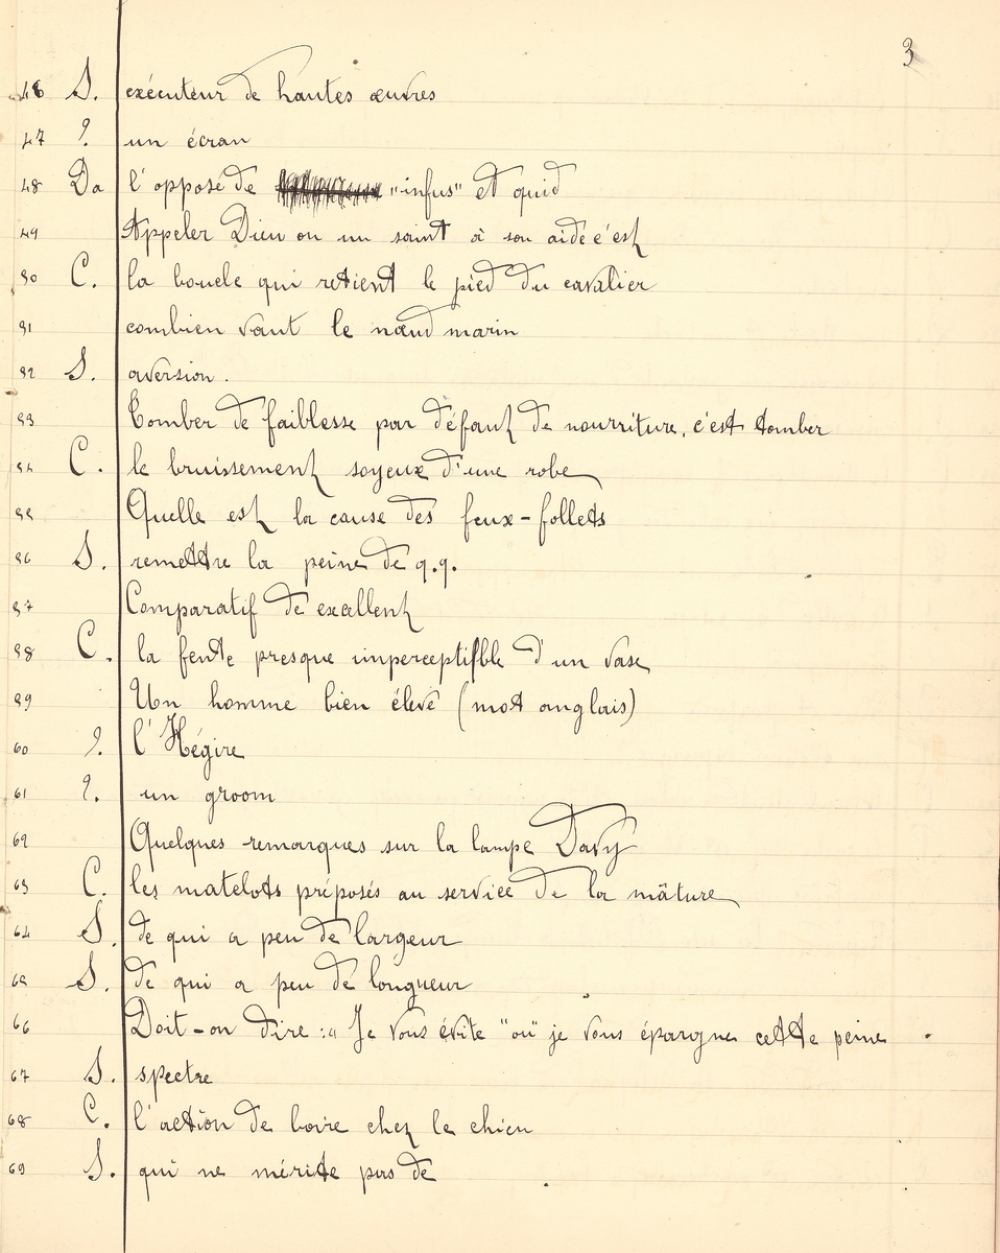 3
46 S. exécuteur de hautes œuvres
47 ?. un écran
48 Da l'opposé de "infus" et quid
49 Appeler Dieu ou un saint à son aide c'est
50 C. la boucle qui retient le pied du cavalier
51 combien vaut le nœud marin
52 S. aversion.
53 Tomber de faiblesse par défaut de nourriture, c'est tomber
54 C. le bruissement soyeux d'une robe
55 Quelle est la cause des feux-follets
56 S. remettre la peine de q.q.
57 Comparatif de excellent
58 C. la fente presque imperceptible d'un vase
59 Un homme bien élevé (mot anglais)
60 ?. l'Hégire
61 ?. un groom
62 Quelques remarques sur la lampe Davy
63 C. les matelots préposés au service de la mâture
64 S. de qui a peu de largeur
65 S. de qui a peu de longueur
66 Doit-on dire : "Je vous évite "ou" je vous épargne cette peine
67 S. spectre
68 C. l'action de boire chez le chien
69 S. qui ne mérite pas de